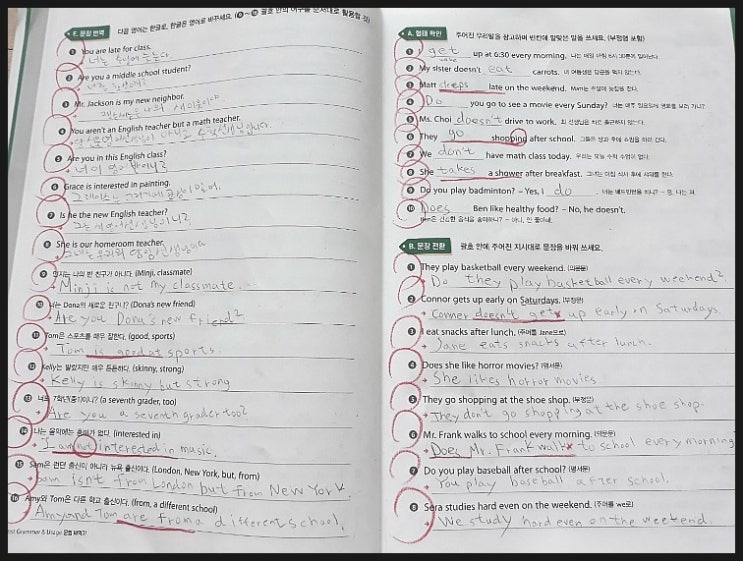 E. 문장 번역
다음 영어는 한글로, 한글은 영어로 바꾸세요.
1 You are late for class.
2 Are you a middle school student?
3 Mr. Jackson is my new neighbor.
4 You aren't an English teacher but a math teacher.
5 Are you in this English class?
6 Grace is interested in painting.
7 Is he the new English teacher?
8 She is our homeroom teacher.
9 민지는 나의 반 친구가 아니다. (Minji, classmate)
→ Minji is not my classmate.
10 너는 Dona의 새로운 친구니? (Dona's new friend)
→ Are you Dona's new friend?
11 Tom은 스포츠를 매우 잘한다. (good, sports)
→ Tom is good at sports.
12 Kelly는 말랐지만 매우 튼튼하다. (skinny, strong)
→ Kelly is skinny but strong
13 (a seventh grader, too)
→ Are you a seventh grader too?
14 나는 음악에는 흥미가 없다. (interested in)
→ I am not interested in music.
15 Sam은 런던 출신이 아니라 뉴욕 출신이다. (London, New York, but, from)
→ Sam isn't from London but from New York.
16 Amy와 Tom은 다른 학교 출신이다. (from, a different school)
Amy and Tom are from a different school.
Grammar & Usage
A. 형태 확인
주어진 우리말을 참고하여 빈칸에 알맞은 말을 쓰세요. (부정형 포함)
1 I get up at 6:30 every morning. 나는 매일 아침 6시 30분에 일어난다.
2 My sister doesn't eat carrots. 내 여동생은 당근을 먹지 않는다.
3 Matt sleeps late on the weekend. Matt는 주말에 늦잠을 잔다.
4 Do you go to see a movie every Sunday? 너는 매주 일요일에 영화를 보러 가니?
5 Ms. Choi doesn't drive to work. 최 선생님은 차로 출근하지 않는다.
6 They go shopping after school. 그들은 방과 후에 쇼핑을 하러 간다.
7 We don't have math class today. 우리는 오늘 수학 수업이 없다.
8 She takes a shower after breakfast. 그녀는 아침 식사 후에 샤워를 한다.
9 Do you play badminton? – Yes, I do. 너는 배드민턴을 치니? – 응, 나는 쳐.
10 Does Ben like healthy food? – No, he doesn't.
Ben은 건강한 음식을 좋아하니? – 아니, 안 좋아해.
B. 문장 전환
괄호 안에 주어진 지시대로 문장을 바꿔 쓰세요.
1 They play basketball every weekend. (의문문)
→ Do they play basketball every weekend?
2 Connor gets up early on Saturdays. (부정문)
→ Conner doesn't gets up early on Saturdays.
3 I eat snacks after lunch. (주어를 Jane으로)
→ Jane eats snacks after lunch.
4 Does she like horror movies? (평서문)
→ She likes horror movies
5 They go shopping at the shoe shop. (부정문)
→ They don't go shopping at the shoe shop.
6 Mr. Frank walks to school every morning. (의문문)
→ Does Mr. Frank walks to school every morning
7 Do you play baseball after school? (평서문)
→ You play baseball after school.
8 Sera studies hard even on the weekend. (주어를 we로)
→ We study hard even on the weekend.